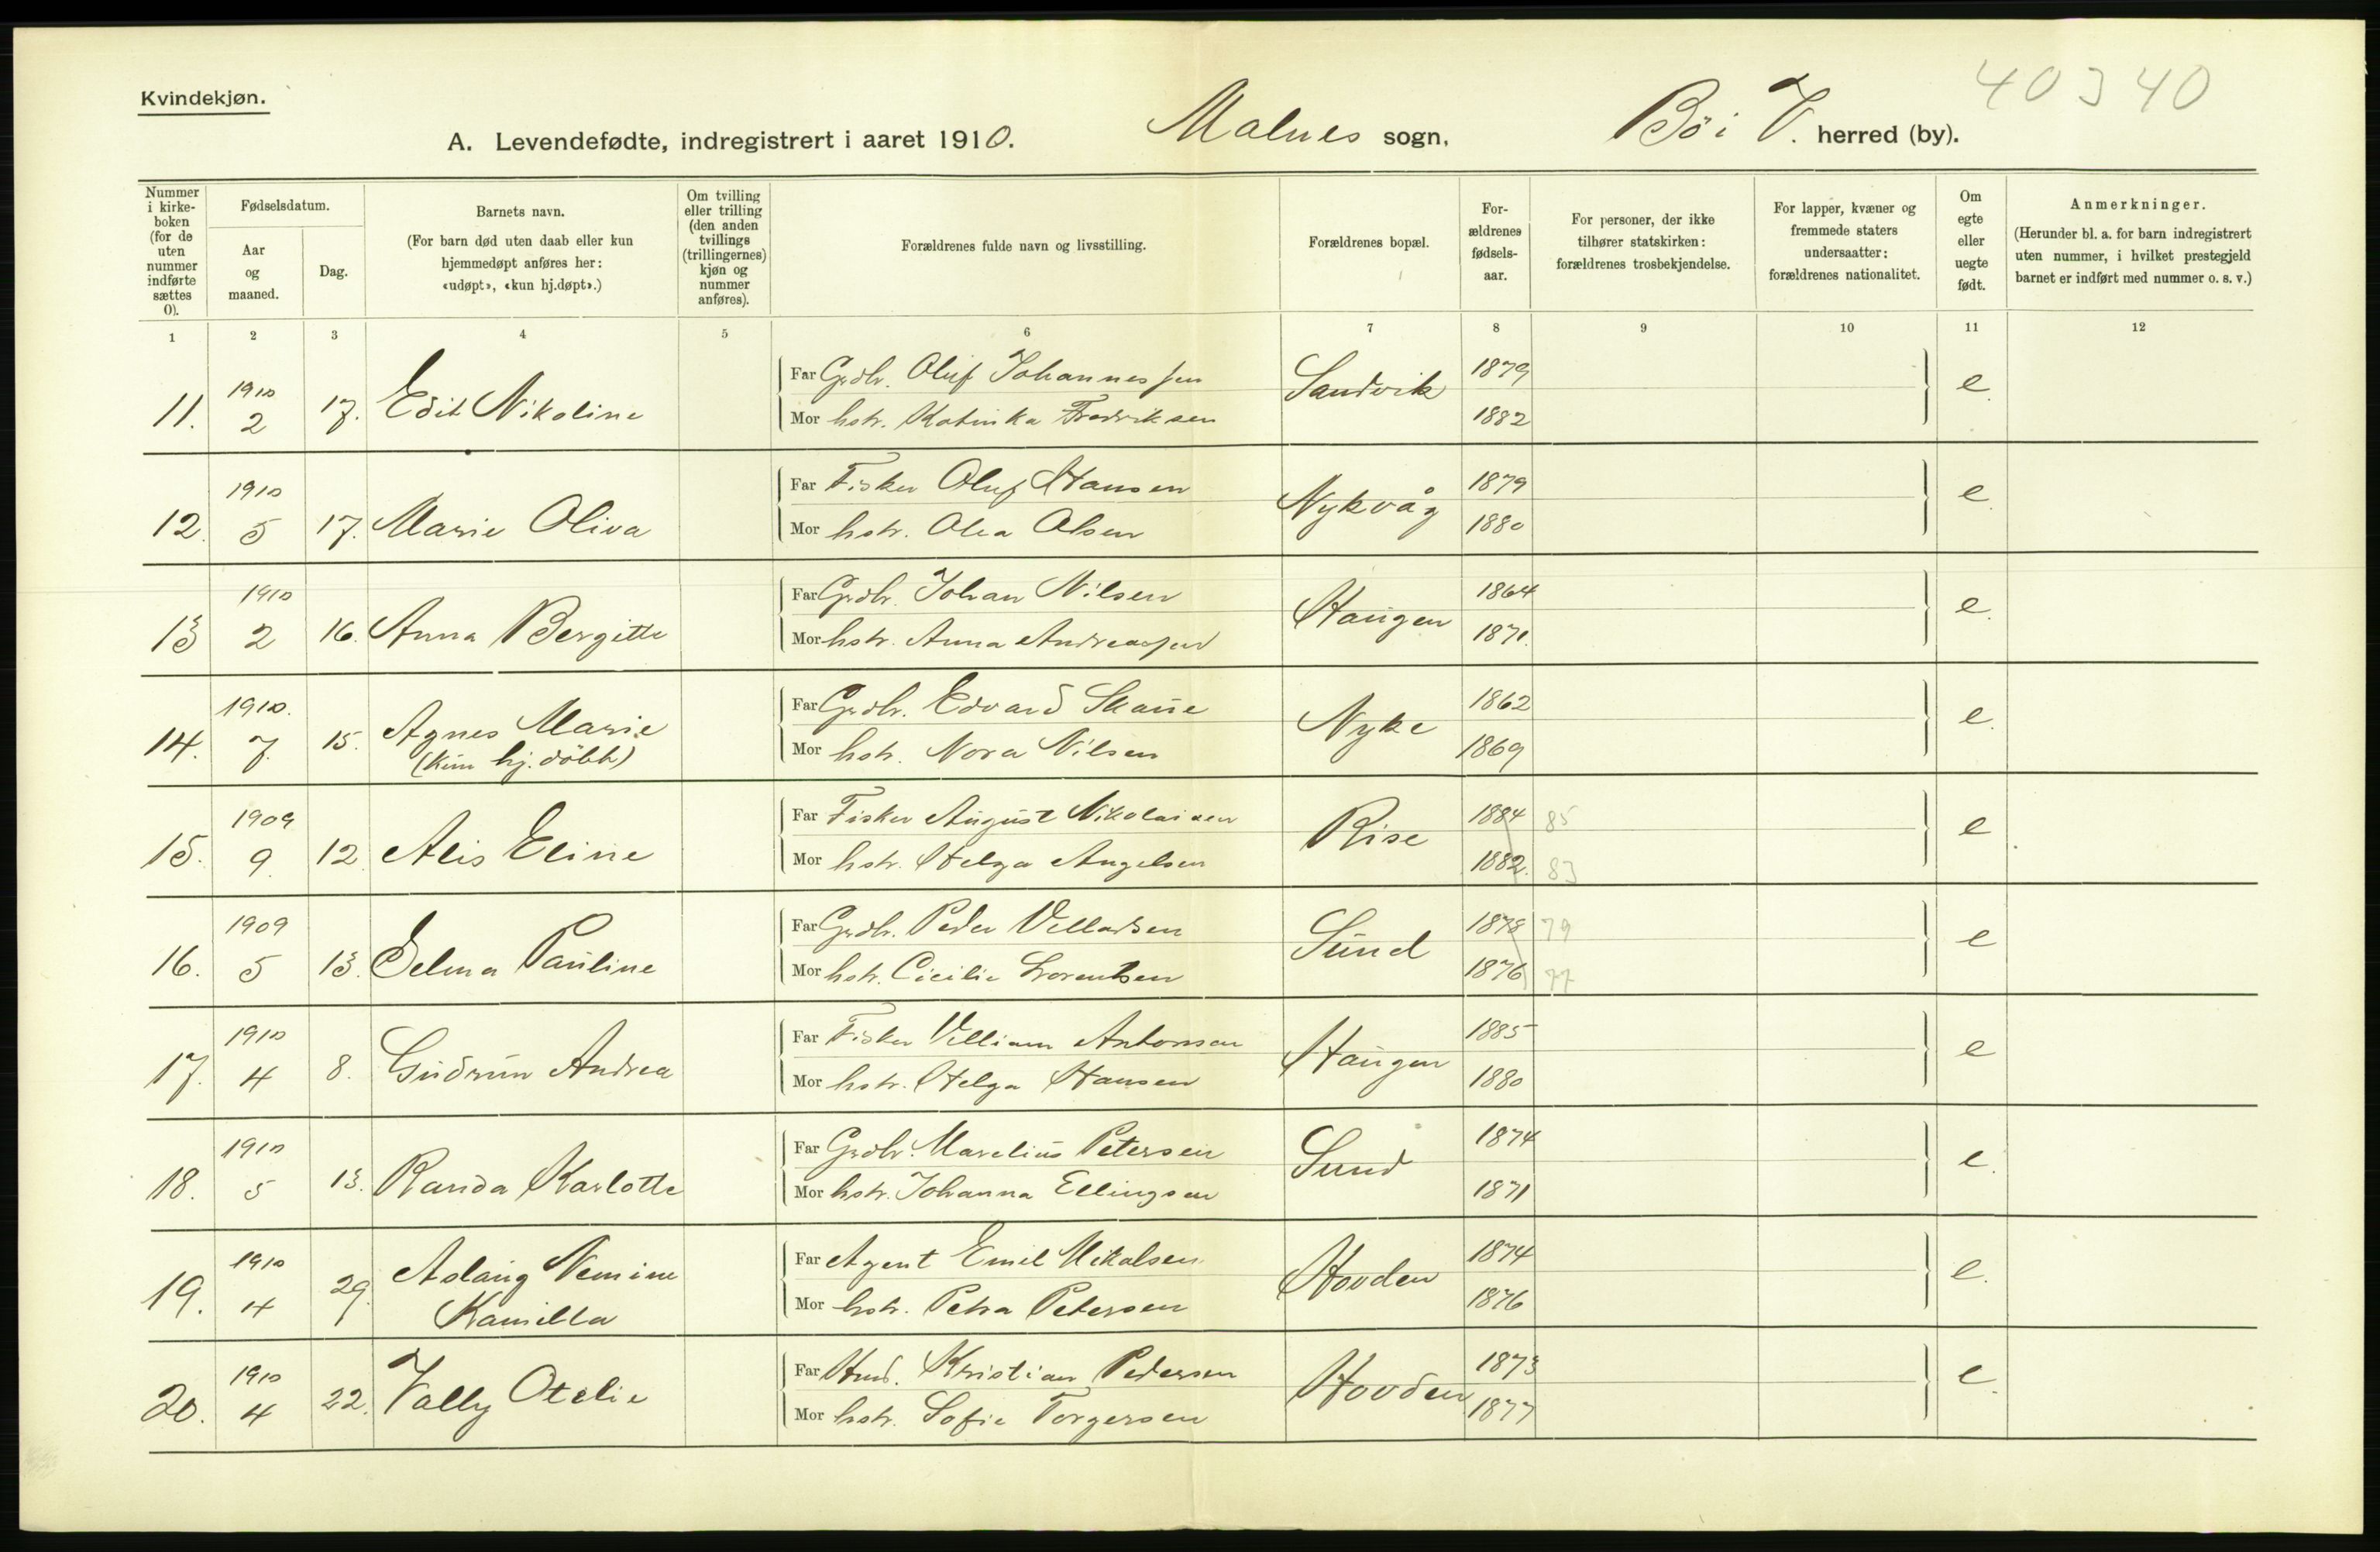 Kvindekjøn.
40340
A. Levendefødte, indregistrert i aaret 1910. Malnes sogn, Bö i V. herred (by).
Nummer i kirkeboken (for de uten nummer indførte sættes 0).
Fødselsdatum.
Aar og maaned.
Dag.
Barnets navn.
(For barn død uten daab eller kun hjemmedøpt anføres her: «udøpt», «kun hj.døpt».)
Om tvilling eller trilling (den anden tvillings (trillingernes) kjøn og nummer anføres).
Forældrenes fulde navn og livsstilling.
Forældrenes bopæl.
Forældrenes fødselsaar.
For personer, der ikke tilhører statskirken: forældrenes trosbekjendelse.
For lapper, kvæner og fremmede staters undersaatter: forældrenes nationalitet.
Om egte eller uegte født.
Anmerkninger.
(Herunder bl. a. for barn indregistrert uten nummer, i hvilket prestegjeld barnet er indført med nummer o. s. v.)
1 2 3 4 5 6 7 8 9 10 11 12
11. 1910 2 17. Edit Nikoline Far Grdbr. Oluf Johannessen Sandvik 1879 e.
Mor hstr. Katinka Fredriksen 1882
12. 1910 5 17. Marie Oliva Far Fisker Oluf Hansen Nykvåg 1879 e.
Mor hstr. Olea Olsen 1880
13 1910 2 16. Anna Bergitte Far Grdbr. Johan Nilsen Haugen 1864 e.
Mor hstr. Anna Andreassen 1871.
14. 1910. 7. 15. Agnes Marie Far Grdbr. Edvard Skaue Nyke 1862 e.
(kun hj. döbt) Mor hstr. Nora Nilsen 1869
15. 1909 9. 12 Alis Eline Far Fisker August Nikolaisen Rise 1884 85 e
Mor hstr. Helga Angelsen 1882. 83
16. 1909 5 13. Selma Pauline Far Grdbr. Peder Velladsen Sund 1878 79 e
Mor hstr. Cicilie Lorentsen 1876 77
17. 1910 4 8. Gudrun Andrea Far Fisker Villiam Antonsen Haugen 1885 e
Mor hstr. Helga Hansen 1880
18. 1910 5 13. Randa Karlotte Far Grdbr. Marelius Petersen Sund 1874 e.
Mor hstr. Johanna Ellingsen 1871
19. 1910 4 29. Aslaug Nemine Far Agent Emil Mikalsen Hovden 1874 e.
Kamilla Mor hstr. Petra Petersen 1876
20. 1910 4 22. Vally Otelie Far Hmd. Kristian Pedersen Hovden 1873 e.
Mor hstr. Sofie Torgersen 1877